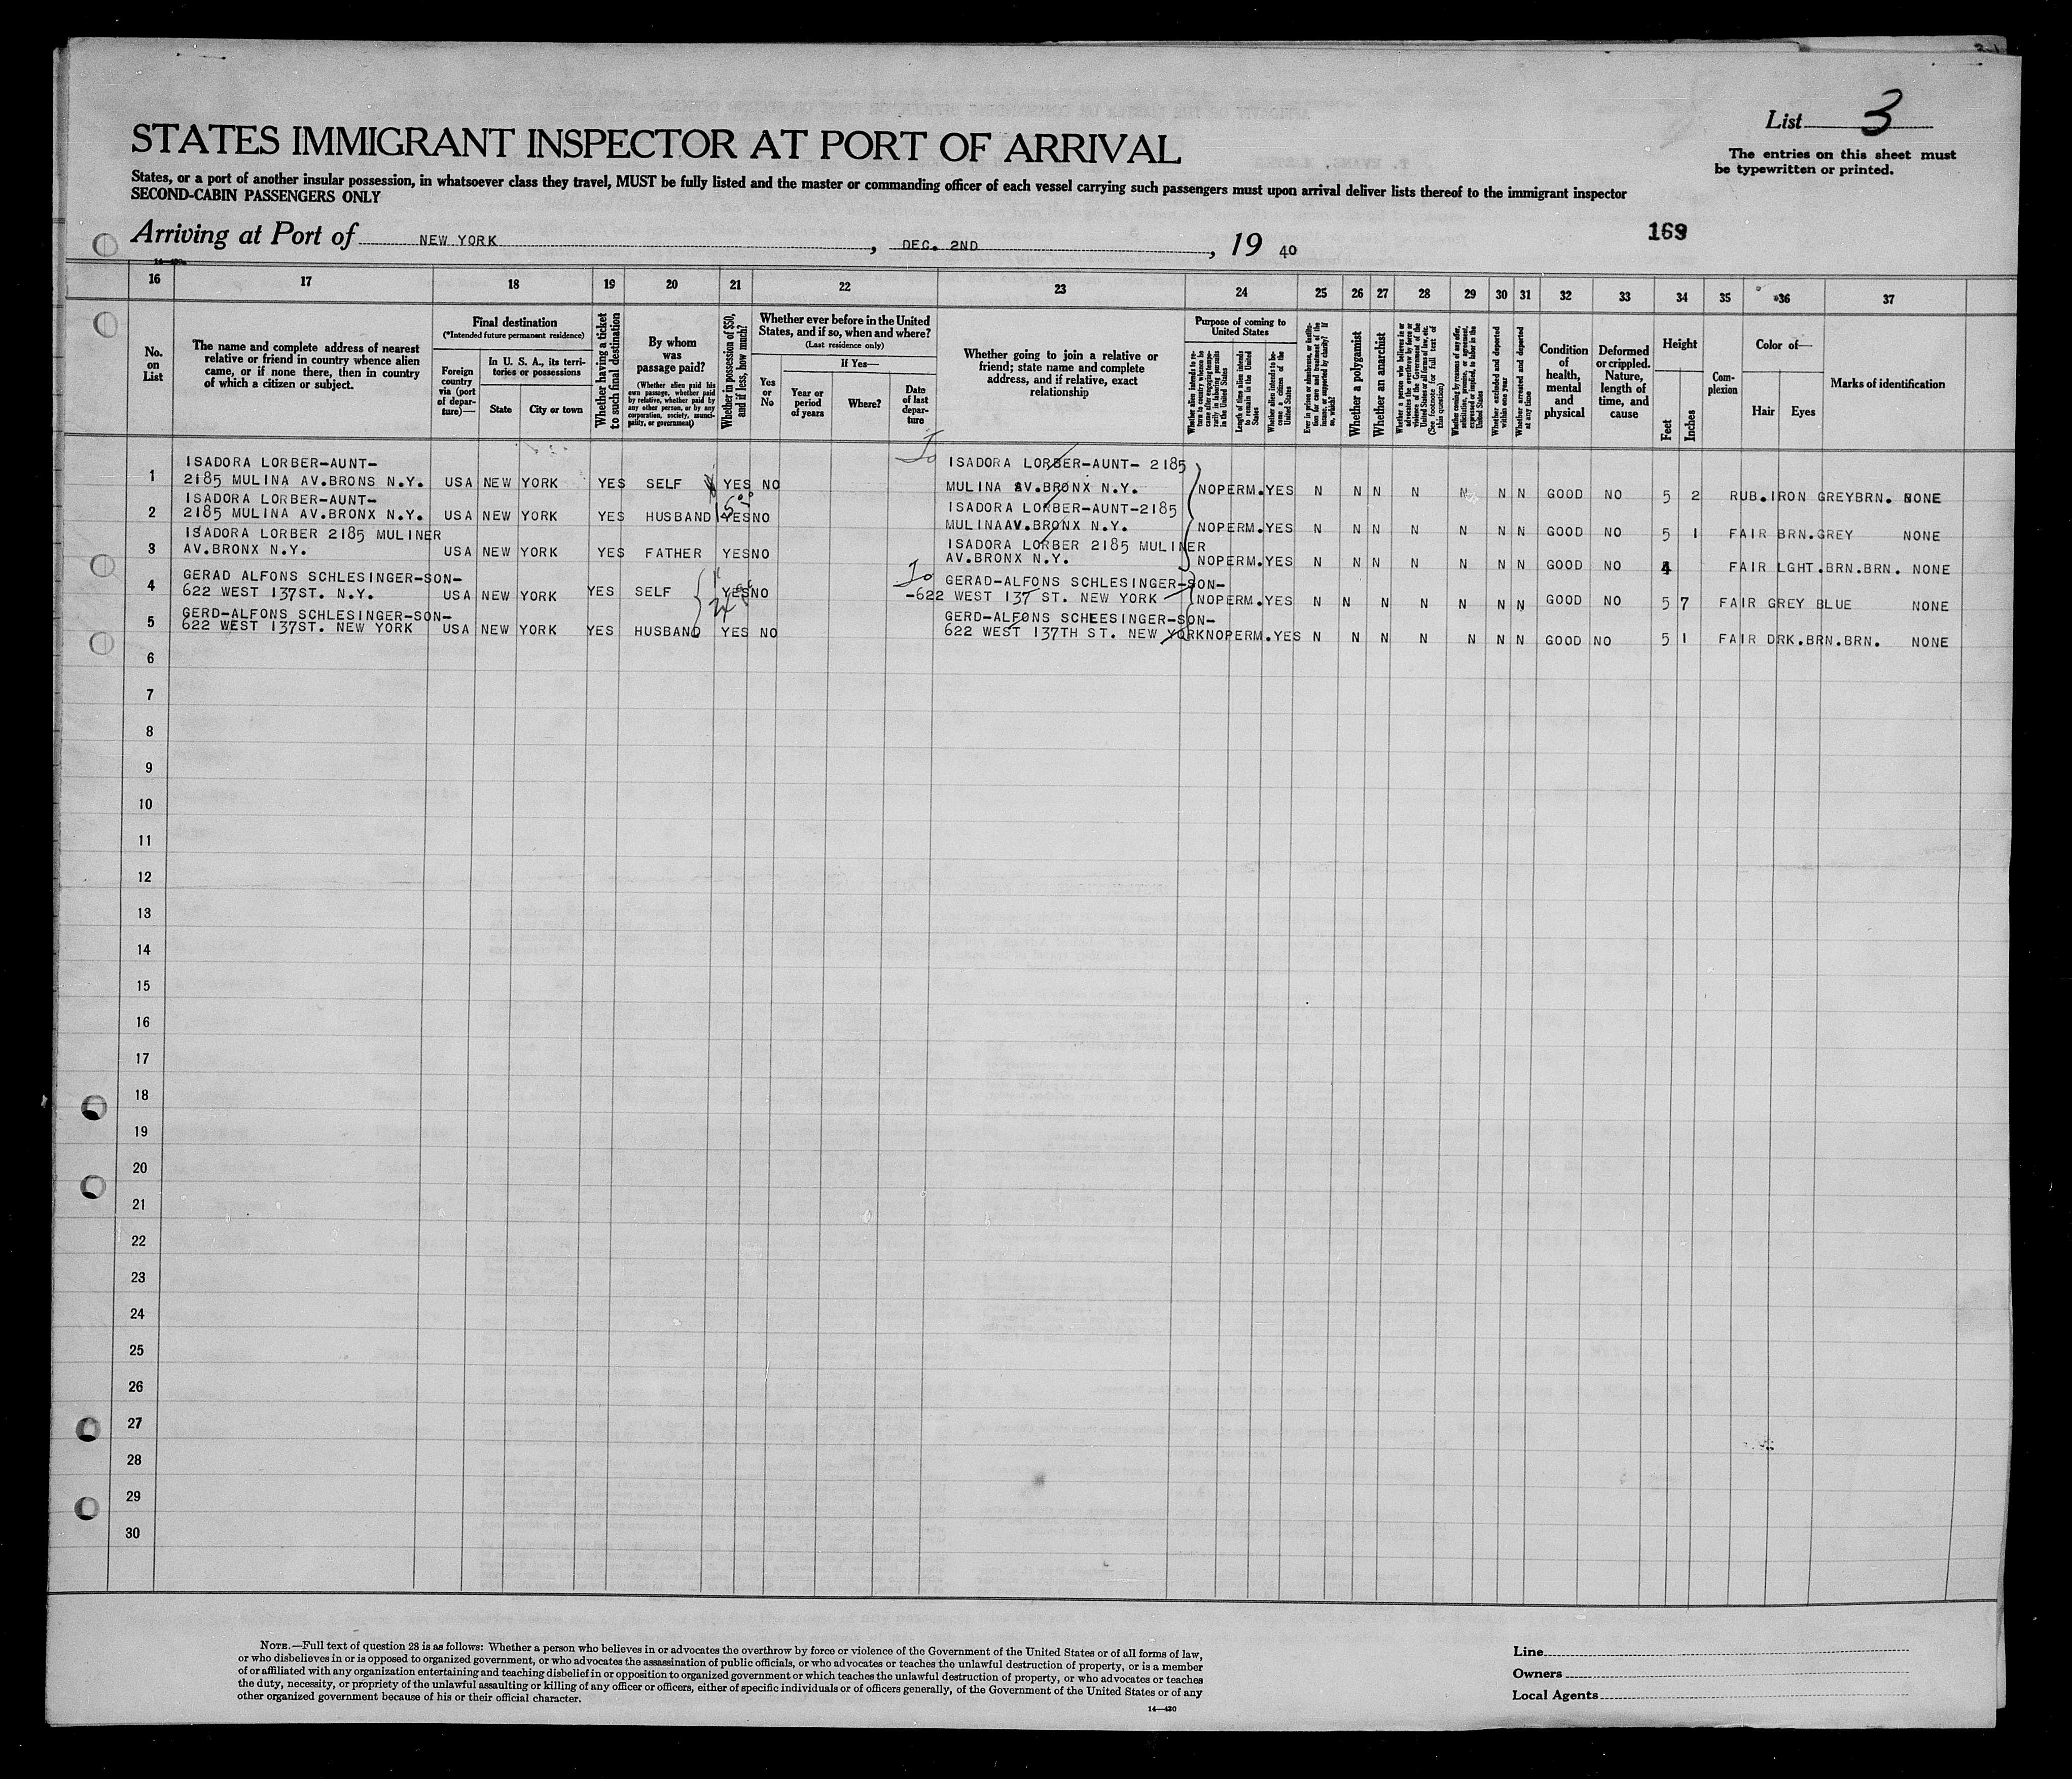 List 3
STATES IMMIGRANT INSPECTOR AT PORT OF ARRIVAL
The entries on this sheet must
be typewritten or printed.
States, or a port of another insular possession, in whatsoever class they travel, MUST be fully listed and the master or commanding officer of each vessel carrying such passengers must upon arrival deliver lists thereof to the immigrant inspector
SECOND-CABIN PASSENGERS ONLY
169
Arriving at Port of NEW YORK, DEC. 2ND, 19 40
16 17 18 19 20 21 22 23 24 25 26 27 28 29 30 31 32 33 34 35 36 37
No. on List
The name and complete address of nearest relative or friend in country whence alien came, or if none there, then in country of which a citizen or subject.
Final destination
(*Intended future permanent residence)
Foreign country via (port of departure)—
In U. S. A., its territories or possessions
State
City or town
Whether having a ticket to such final destination
By whom was passage paid?
(Whether alien paid his own passage, whether paid by relative, whether paid by any other person, or by any corporation, society, municipality, or government)
Whether in possession of $50, and if less, how much?
Whether ever before in the United States, and if so, when and where?
(Last residence only)
Yes or No
If Yes—
Year or period of years
Where?
Date of last departure
Whether going to join a relative or friend; state name and complete address, and if relative, exact relationship
Purpose of coming to United States
Length of time alien intends to remain in the United States
Whether alien intends to become a citizen of the United States
Whether a polygamist
Whether an anarchist
Whether excluded and deported within one year
Whether arrested and deported at any time
Condition of health, mental and physical
Deformed or crippled. Nature, length of time, and cause
Height
Feet
Inches
Complexion
Color of—
Hair
Eyes
Marks of identification
1 ISADORA LORBER-AUNT- 2185 MULINA AV.BRONS N.Y. USA NEW YORK YES SELF YES NO To ISADORA LORBER-AUNT- 2185 MULINA AV.BRONX N.Y. NO PERM. YES N N N N N N N GOOD NO 5 2 RUB. IRON GREY BRN. NONE
2 ISADORA LORBER-AUNT- 2185 MULINA AV.BRONX N.Y. USA NEW YORK YES HUSBAND YES NO ISADORA LORBER-AUNT-2185 MULINAAV.BRONX N.Y. NO PERM. YES N N N N N N N GOOD NO 5 1 FAIR BRN. GREY NONE
3 ISADORA LORBER 2185 MULINER AV.BRONX N.Y. USA NEW YORK YES FATHER YES NO ISADORA LORBER 2185 MULINER AV.BRONX N.Y. NO PERM. YES N N N N N N N GOOD NO 4 FAIR LGHT.BRN. BRN. NONE
4 GERAD ALFONS SCHLESINGER-SON- 622 WEST 137ST. N.Y. USA NEW YORK YES SELF YES NO To GERAD-ALFONS SCHLESINGER-SON- -622 WEST 137 ST. NEW YORK NO PERM. YES N N N N N N N GOOD NO 5 7 FAIR GREY BLUE NONE
5 GERD-ALFONS SCHLESINGER-SON- 622 WEST 137ST. NEW YORK USA NEW YORK YES HUSBAND YES NO GERD-ALFONS SCHEESINGER-SON- 622 WEST 137TH ST. NEW YORK NO PERM. YES N N N N N N N GOOD NO 5 1 FAIR DRK.BRN. BRN. NONE
6
7
8
9
10
11
12
13
14
15
16
17
18
19
20
21
22
23
24
25
26
27
28
29
30
NOTE.—Full text of question 28 is as follows: Whether a person who believes in or advocates the overthrow by force or violence of the Government of the United States or of all forms of law,
or who disbelieves in or is opposed to organized government, or who advocates the assassination of public officials, or who advocates or teaches the unlawful destruction of property, or is a member
of or affiliated with any organization entertaining and teaching disbelief in or opposition to organized government or which teaches the unlawful destruction of property, or who advocates or teaches
the duty, necessity, or propriety of the unlawful assaulting or killing of any officer or officers, either of specific individuals or of officers generally, of the Government of the United States or of any
other organized government because of his or their official character.
14—420
Line
Owners
Local Agents